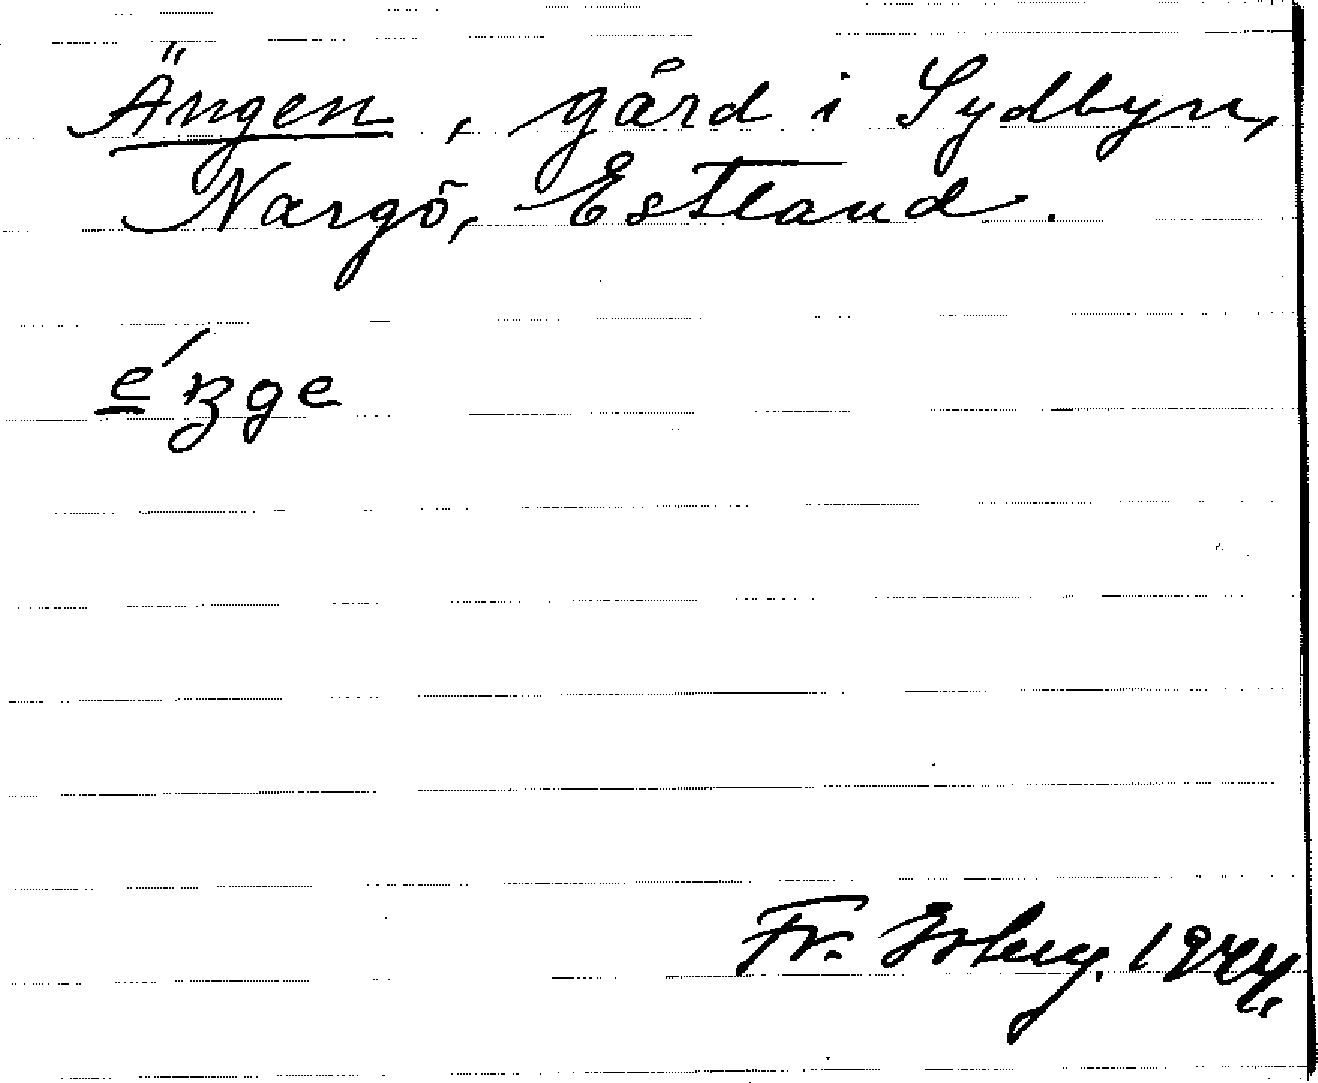 Ängen, gård i Sydbyn,
Nargö, Estland.
Fr. Isberg. 1944.